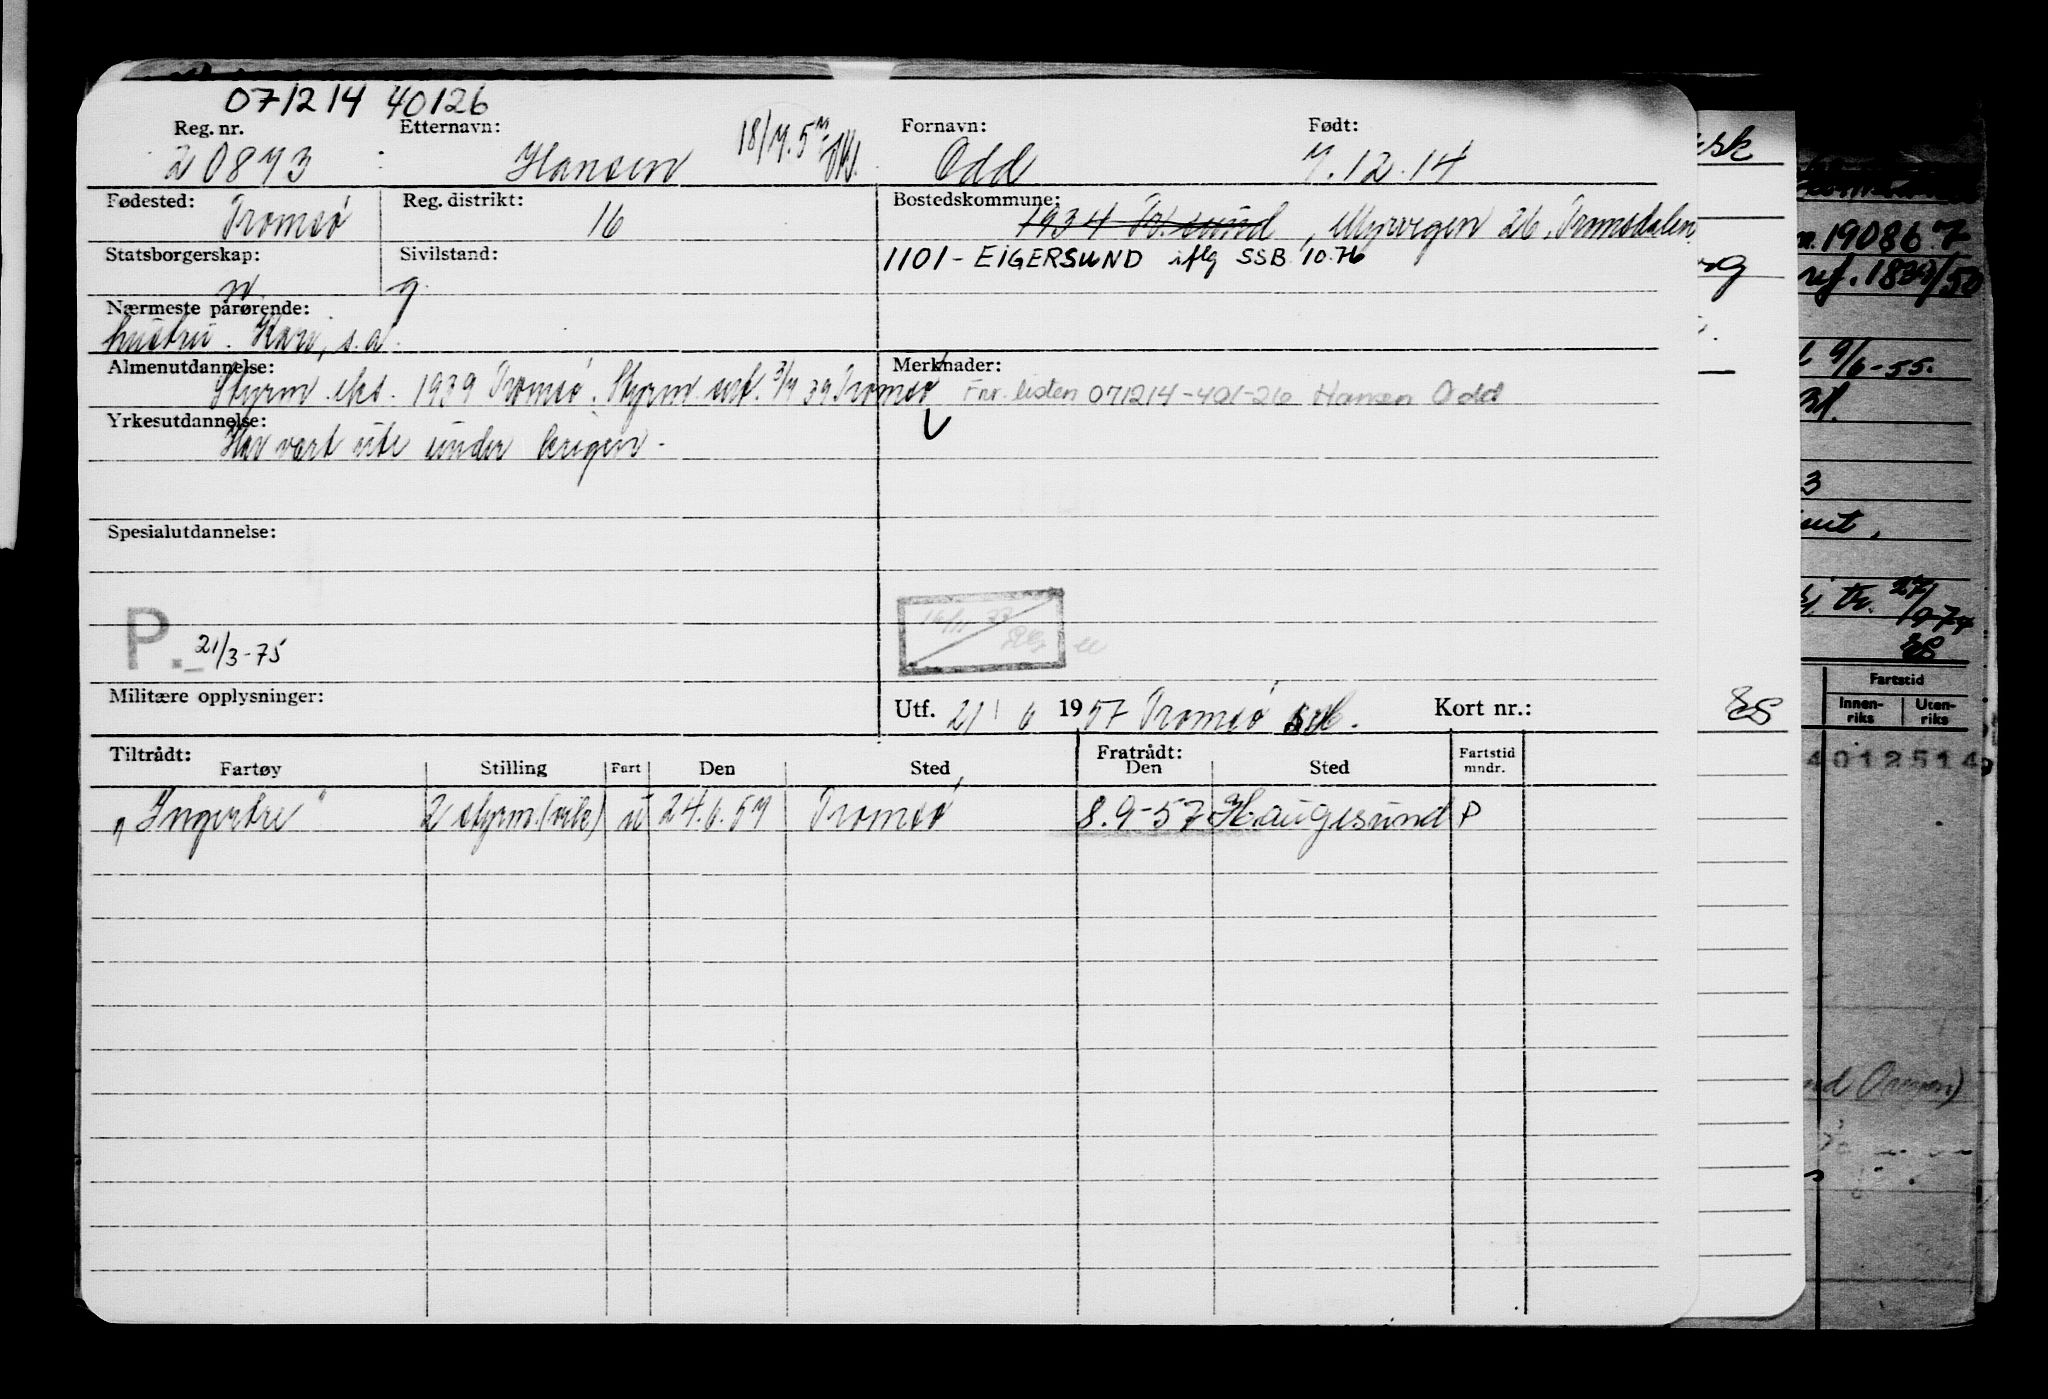 071214 40126
Reg. nr. Etternavn: Fornavn: Født:
20873 Hansen 18/7.57 Odd 7.12.14
Fødested: Reg. distrikt: Bostedskommune:
Tromsø 16 1934 Tr.sund, Myrvegen 26, Tromsdalen
Statsborgerskap: Sivilstand: 1101 - EIGERSUND iflg SSB 10.76
n g.
Nærmeste pårørende:
hustru. Kari, s.a.
Almenutdannelse: Merknader:
Styrm. eks. 1939 Tromsø. Styrm. sert. 3/7 39 Tromsø Fnr. listen 071214-401-26 Hansen Odd
Yrkesutdannelse:
Har vært ute under krigen.
Spesialutdannelse:
P. 21/3-75
16/11 77
Militære opplysninger: Utf. 21/6 1957 Tromsø Kort nr.:
Tiltrådt: Fratrådt:
Fartøy Stilling Fart Den Sted Den Sted Fartstid mndr.
"Ingertre" 2 styrm. (vik) u 24.6.57 Tromsø 8.9-57 Haugesund P
usk
19086 7
ref. 1839/50
9/6-55.
3
27/9-74
ES
Fartstid
Innen-riks Uten-riks
ES
4012514